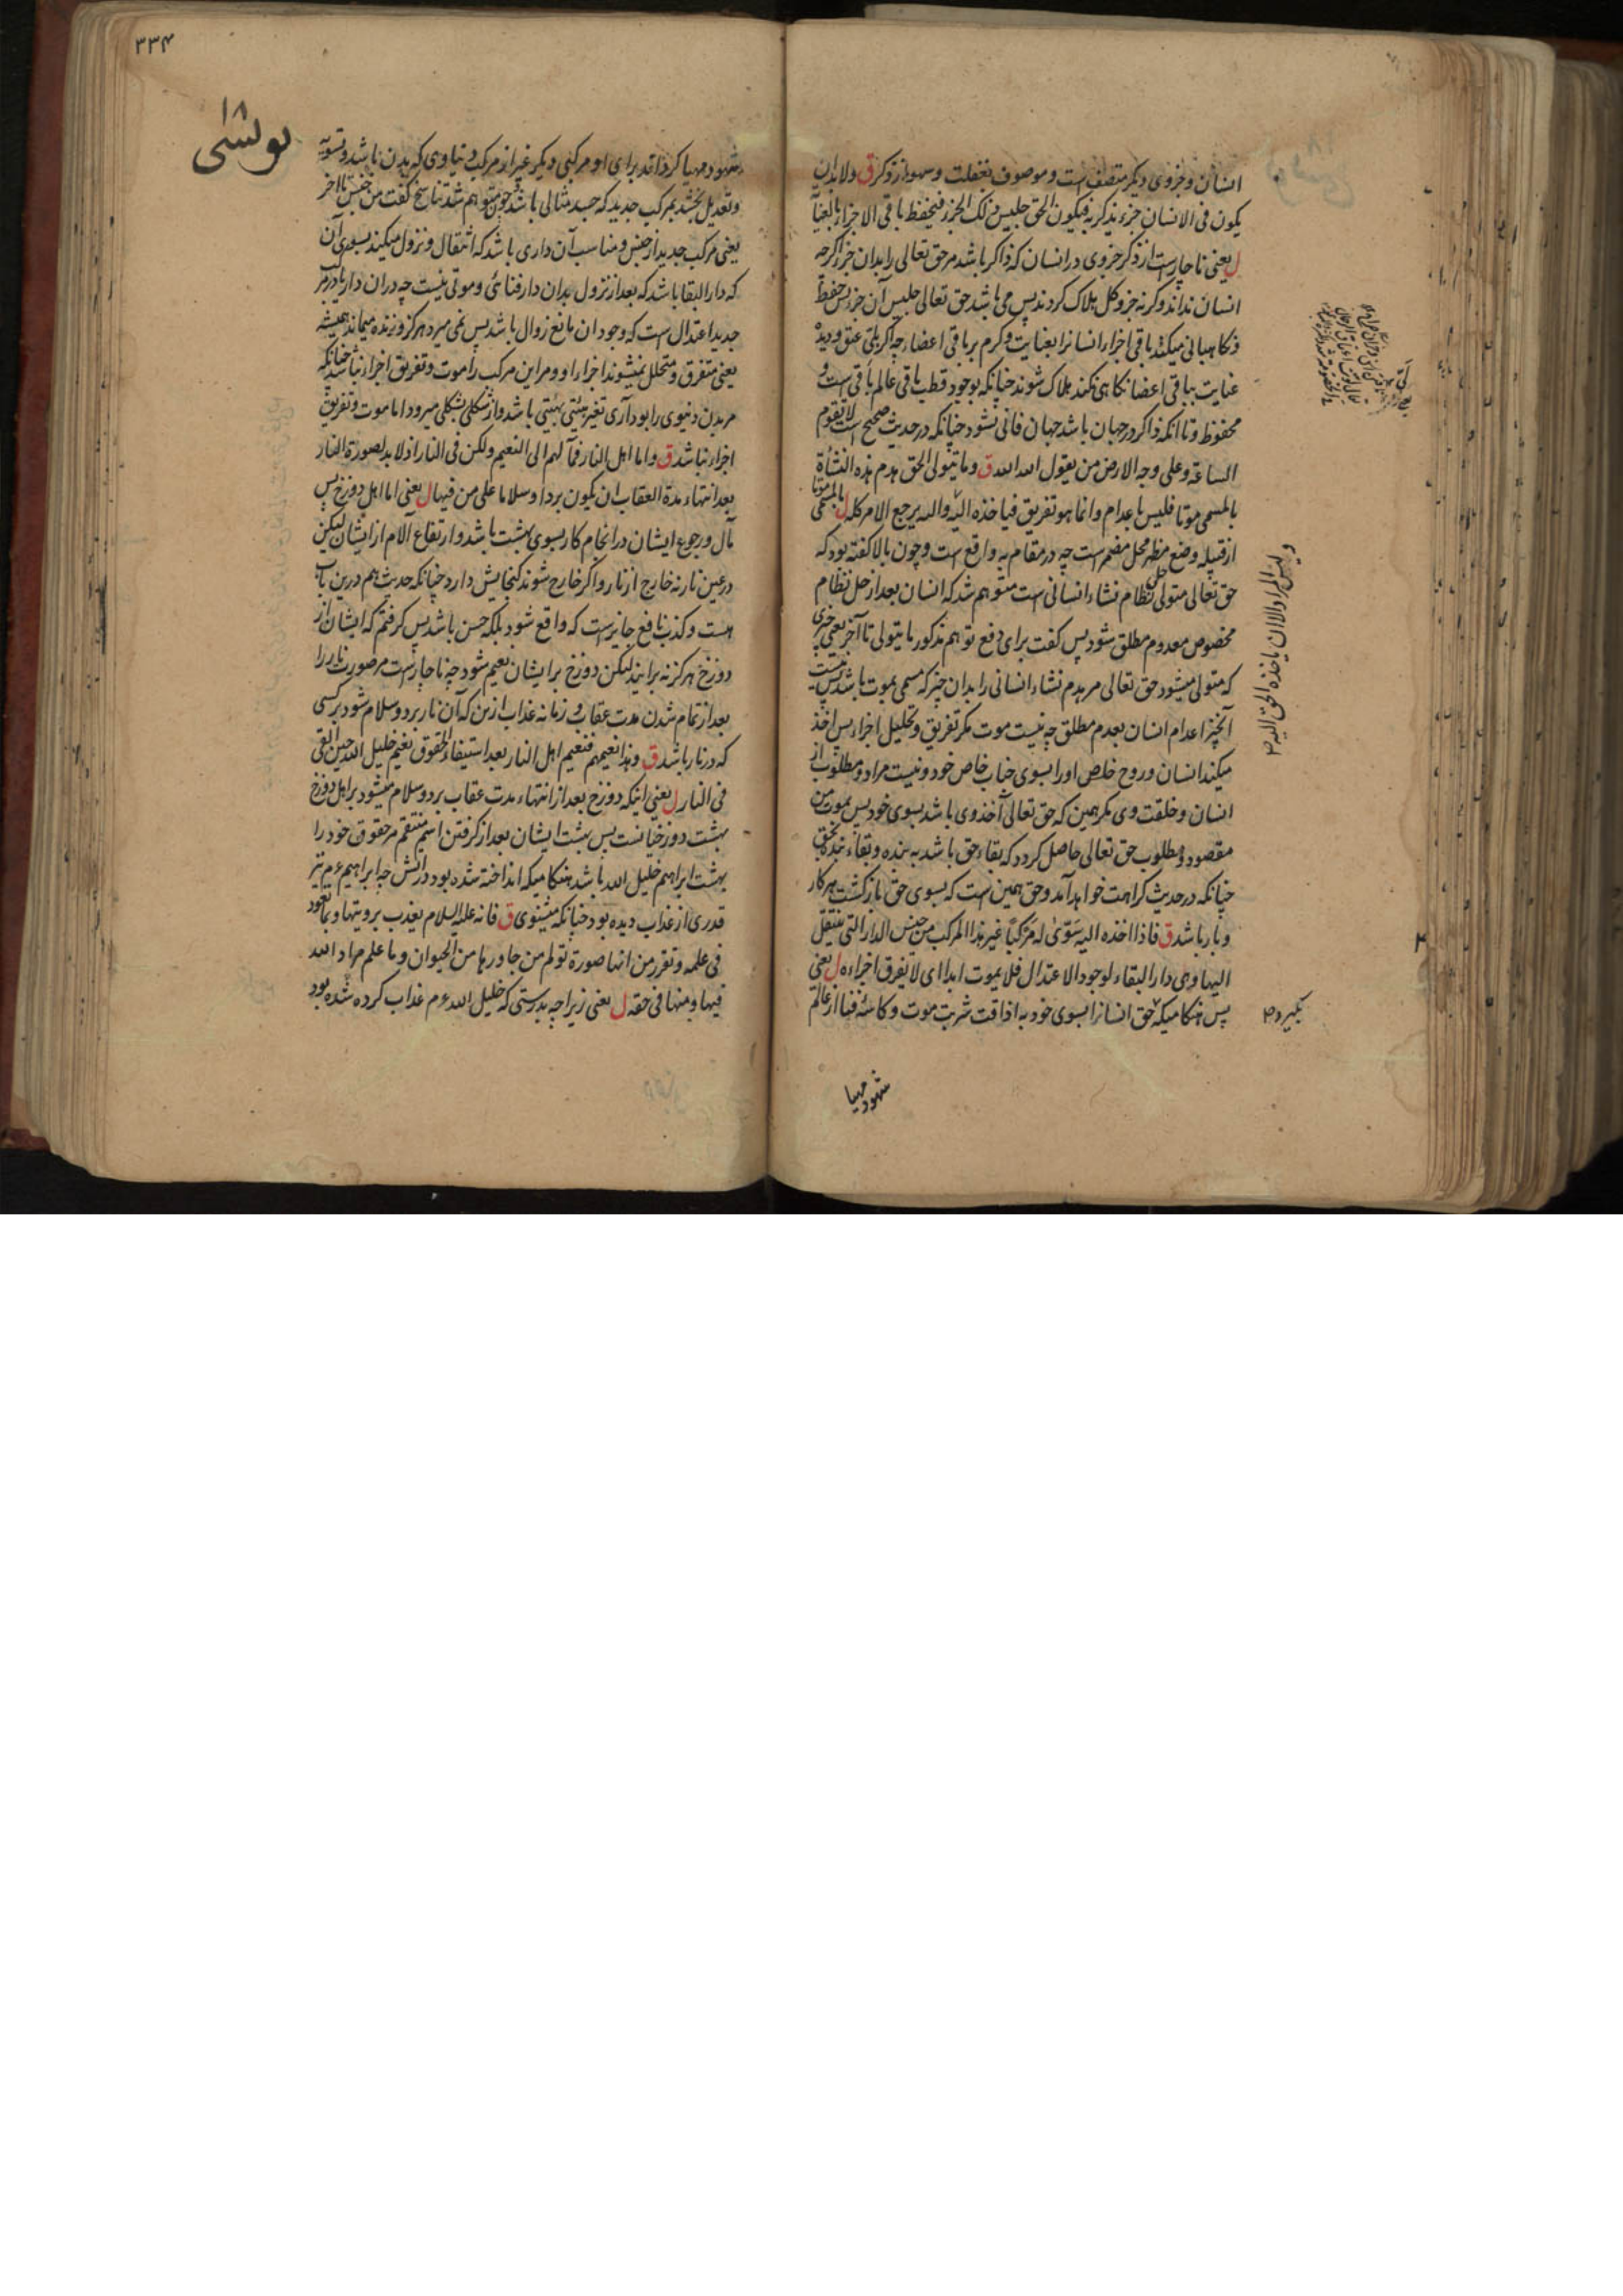 انسان و جزوی دیکر متصف است و موصوف بغفلت و سهو از ذکر ق ولا بد ان
یکون فی الانسان جزء یذکر به فیکون الحق جلیس ذلک الجزء فیحفظ باقی الاجزاء بالعنایة
ل یعنی ناچارست از ذکر جزوی در انسان که ذاکر باشد مر حق تعالی را بدان جزء اکرچه
انسان نداند و کرنه جزو کل هلاک کردند پس می باشد حق تعالی جلیس آن جزء پس حفظ
و نکاهبانی میکند باقی اجزاء انسانرا بعنایت و کرم بر باقی اعضاء چه اکر
عنایت بباقی اعضا نکاهی نکند هلاک شوند چنانکه بوجود قطب باقی عالم باقی است و
محفوظ و تا آنکه ذاکر در جهان باشد جهان فانی نشود چنانکه در حدیث صحیح است لا یقوم
الساعة و علی وجه الارض من یقول الله الله ق وما یتولی الحق هدم هذه النشأة
بالمسمی موتا فلیس باعدام وانما هو تفریق فیاخذه الیه والیه یرجع الامر کله ل بالمسمی موتا
از قبیل وضع مظهر محل مضمر است چه در مقام به واقع است و چون بالا کفته بود که
حق تعالی متولی نظام نشاء انسانی است متوهم شد که انسان بعد از حل نظام
مخصوص معدوم مطلق شود پس کفت برای دفع توهم مذکور ما یتولی تا آخر یعنی چیزی
که متولی میشود حق تعالی مر هدم نشاء انسانی را بدان چیز که مسمی بموت باشد پس نیست
آنچیز اعدام انسان بعدم مطلق چه نیست موت مکر تفریق و تحلیل اجزاء پس اخذ
میکند انسان و روح خلص اورا بسوی جناب خاص خود و نیست مراد و مطلوب از
انسان و خلقت وی مکر همین که حق تعالی آخذ وی باشد بسوی خود پس بموت
مقصود و مطلوب حق تعالی حاصل کردد که بقاء حق باشد به بنده و بقاء بنده بحق
چنانکه در حدیث کراهت خواهد آمد و حق همین است که بسوی حق بازکشت هر کار
و بار باشد ق فاذا اخذه الیه سوّی له مرکبًا غیر هذا المرکب من جنس الدار التی ینتقل
الیها وهی دار البقاء لوجود الاعتدال فلا یموت ابدا ای لا یفرق اجزاءه ل یعنی
پس هنکامیکه حق انسانرا بسوی خود به اذاقت شربت موت و کاسه فنا از عالم
ولیس المراد الا ان یاخذه الحق الیه ۲
بکیرد ۲
شهود مهیا
۳۳۴
۱۸
یونسی
شهود مهیا کرداند برای او مرکبی دیکر غیر از مرکب دنیاوی که بدن باشد و تسویه
و تعدیل بخشد بمرکب جدید که جسد مثالی باشد چون متوهم شد تناسخ کفت من جنس تا آخر
یعنی مرکب جدید از جنس و مناسب آن داری باشد که انتقال و نزول میکند بسوی آن
که دار البقا باشد که بعد از نزول بدان دار فنائی و موتی نیست چه دران دار
جدید اعتدال است که وجود ان مانع زوال باشد پس نمی میرد هرکز و زنده میماند همیشه
یعنی متفرق و متحلل نمیشوند اجزاء او و مر این مرکب را موت و تفریق اجزاء نباشد چنانکه
مر بدن دنیوی را بود آری تغیر هیئتی بهیئتی باشد و از شکلی بشکلی میرود اما موت و تفریق
اجزاء نباشد ق واما اهل النار فمآلهم الی النعیم ولکن فی النار اذ لا بد لصورة النار
بعد انتهاء مدة العقاب ان یکون بردا وسلاما علی من فیها ل یعنی اما اهل دوزخ پس
مآل و رجوع ایشان در انجام کار بسوی بهشت باشد و ارتفاع الام از ایشان لیکن
در عین نار نه خارج از نار و اکر خارج شوند کنجایش دارد چنانکه حدیث هم درین باب
هست و کذب نافع جایز است که واقع شود بلکه حسن باشد پس کرفتم که ایشان از
دوزخ هرکز نه برایند لیکن دوزخ بر ایشان نعیم شود چه ناچارست مر صورت نار را
بعد از تمام شدن مدت عقاب و زمانه عذاب ازین که آن نار برد و سلام شود بر کسی
که در نار باشد ق وهذا نعیمهم فنعیم اهل النار بعد استیفاء الحقوق نعیم خلیل الله حین القی
فی النار ل یعنی اینکه دوزخ بعد از انتهاء مدت عقاب برد و سلام میشود بر اهل دوزخ
بهشت دوزخیانست پس بهشت ایشان بعد از کرفتن اسم منتقم مر حقوق خود را
بهشت ابراهیم خلیل الله باشد هنکامیکه انداخته شده بود در آتش چه ابراهیم عم نیز
قدری از عذاب دیده بود چنانکه میشنوی ق فانه علیه السلام یعذب برویتها وبما تعود
فی علمه وتقرر من انها صورة تولم من جاورها من الحیوان وما علم مراد الله
فیها ومنها فی حقه ل یعنی زیرا چه بدرستی که خلیل الله عم عذاب کرده شده بود